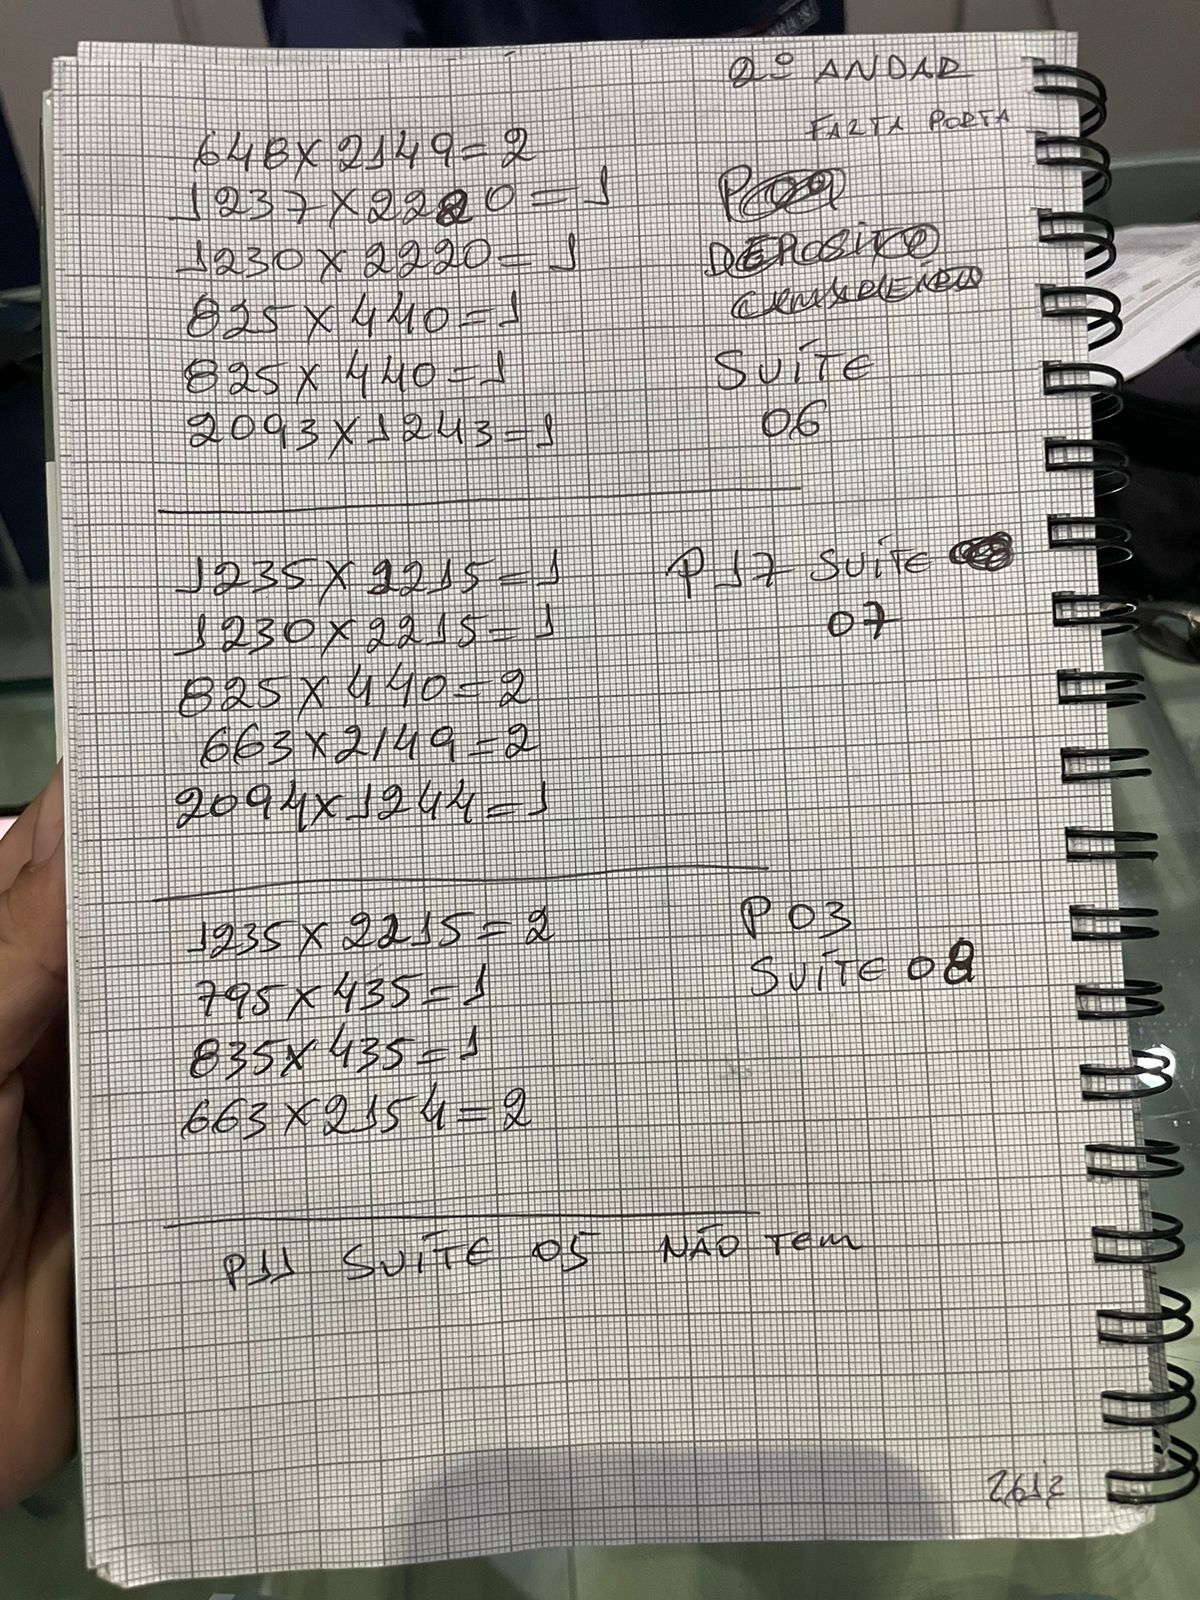 2º ANDAR
FALTA PORTA
648 x 2149 = 2
1237 x 2220 = 1
1230 x 2220 = 1
DEPOSITO
825 x 440 = 1
825 x 440 = 1
SUÍTE
2093 x 1243 = 1
06
1235 x 2215 = 1
P17 SUÍTE
1230 x 2215 = 1
07
825 x 440 = 2
663 x 2149 = 2
2094 x 1244 = 1
1235 x 2215 = 2
P 03
795 x 435 = 1
SUÍTE 08
835 x 435 = 1
663 x 2154 = 2
P11 SUÍTE 05 NÃO TEM